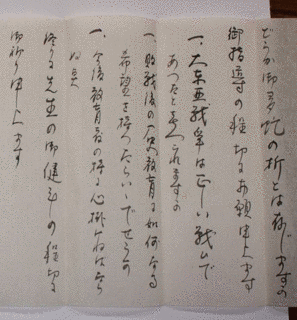 どうか御多忙の折とは存じますが
御指導の程切に御願申上ます
一、大東亜戦争は正しい戦ひで
あつたと考へられますか
一、敗戦後の歴史教育に如何なる
希望を持つたらいゝでせうか
一、今後教育者の持つ心掛けねばなら
ぬ点
終りに先生の御健斗の程切に
御祈り申上ます